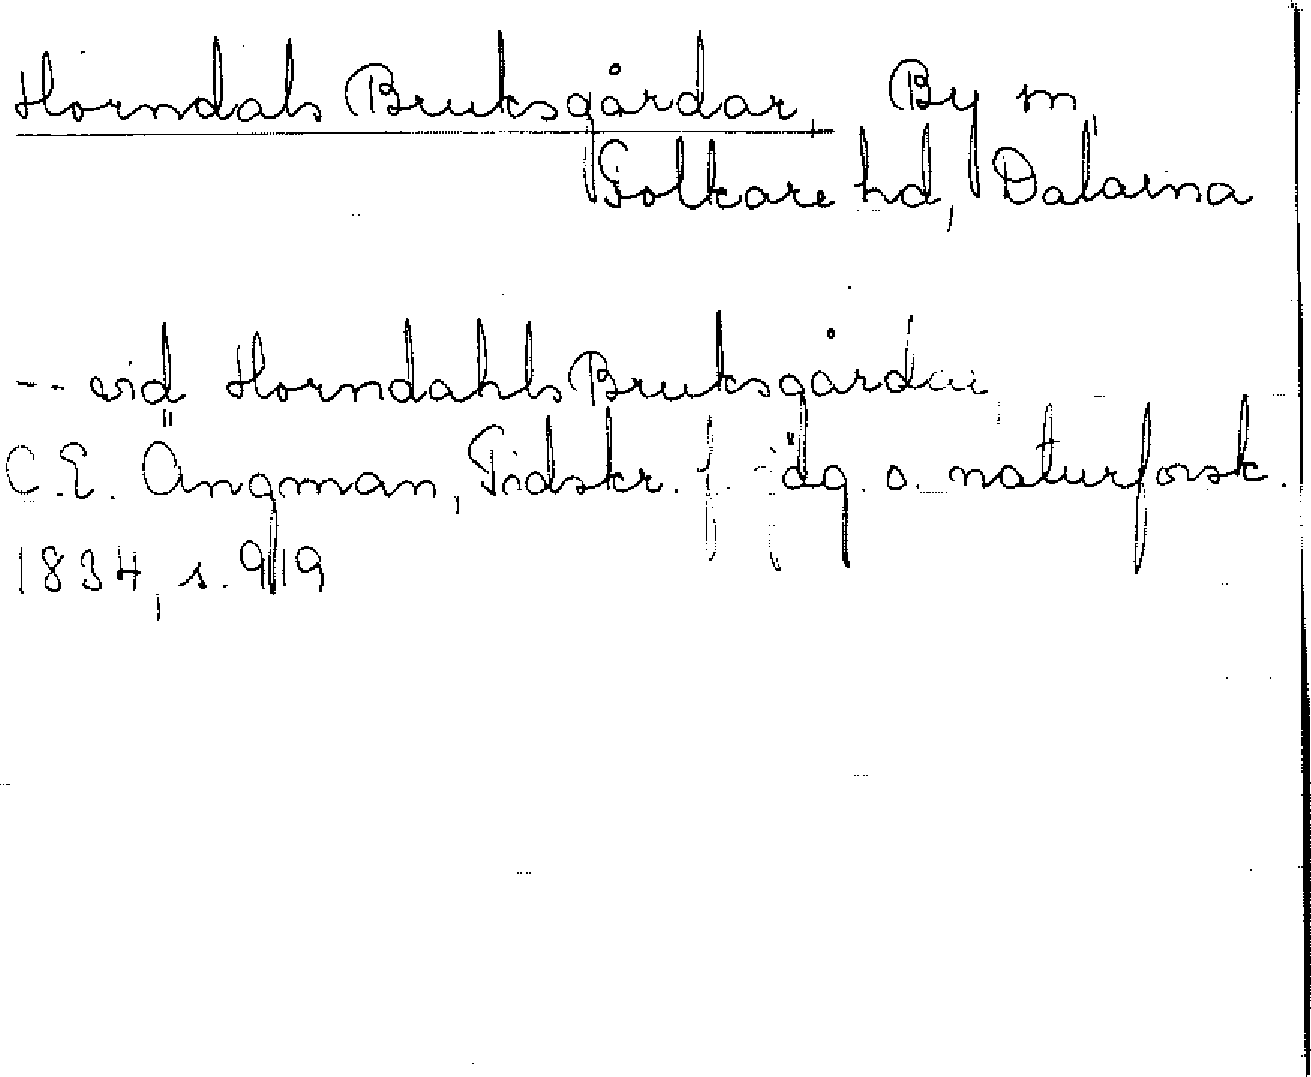 Horndals Bruksgårdar, By sn
Folkare hd, Dalarna
-- vid Horndahls Bruksgårdar
C.E. Ängman, Tidskr. f. jäg. o. naturforsk.
1834, s. 919